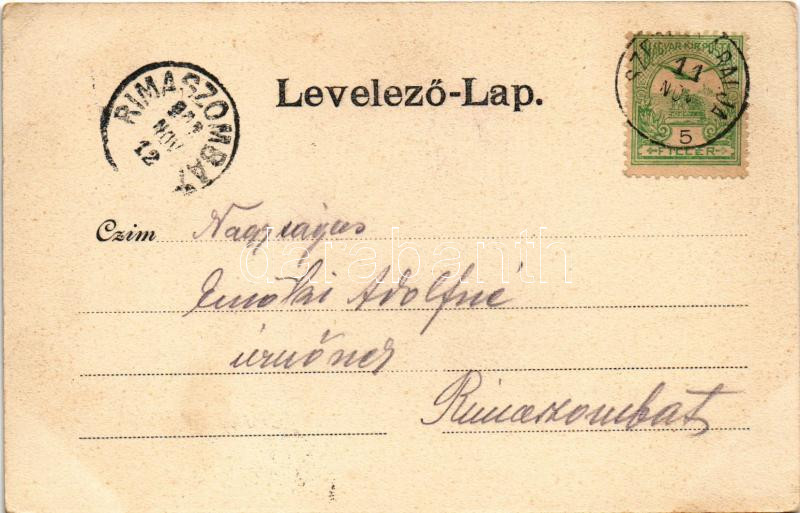 Levelező-Lap.
RIMASZOMBAT
NOV
12
MAGYAR KIR. POSTA
11
NOV
5
FILLÉR
Czim Nagyságos
Adolfné
úrnőnek
Rimaszombat
darabanth